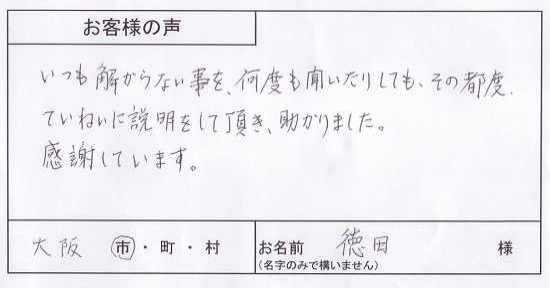 お客様の声
いつも解からない事を、何度も聞いたりしても、その都度、
ていねいに説明をして頂き、助かりました。
感謝しています。
大阪 市・町・村 お名前 徳田 様
(名字のみで構いません)